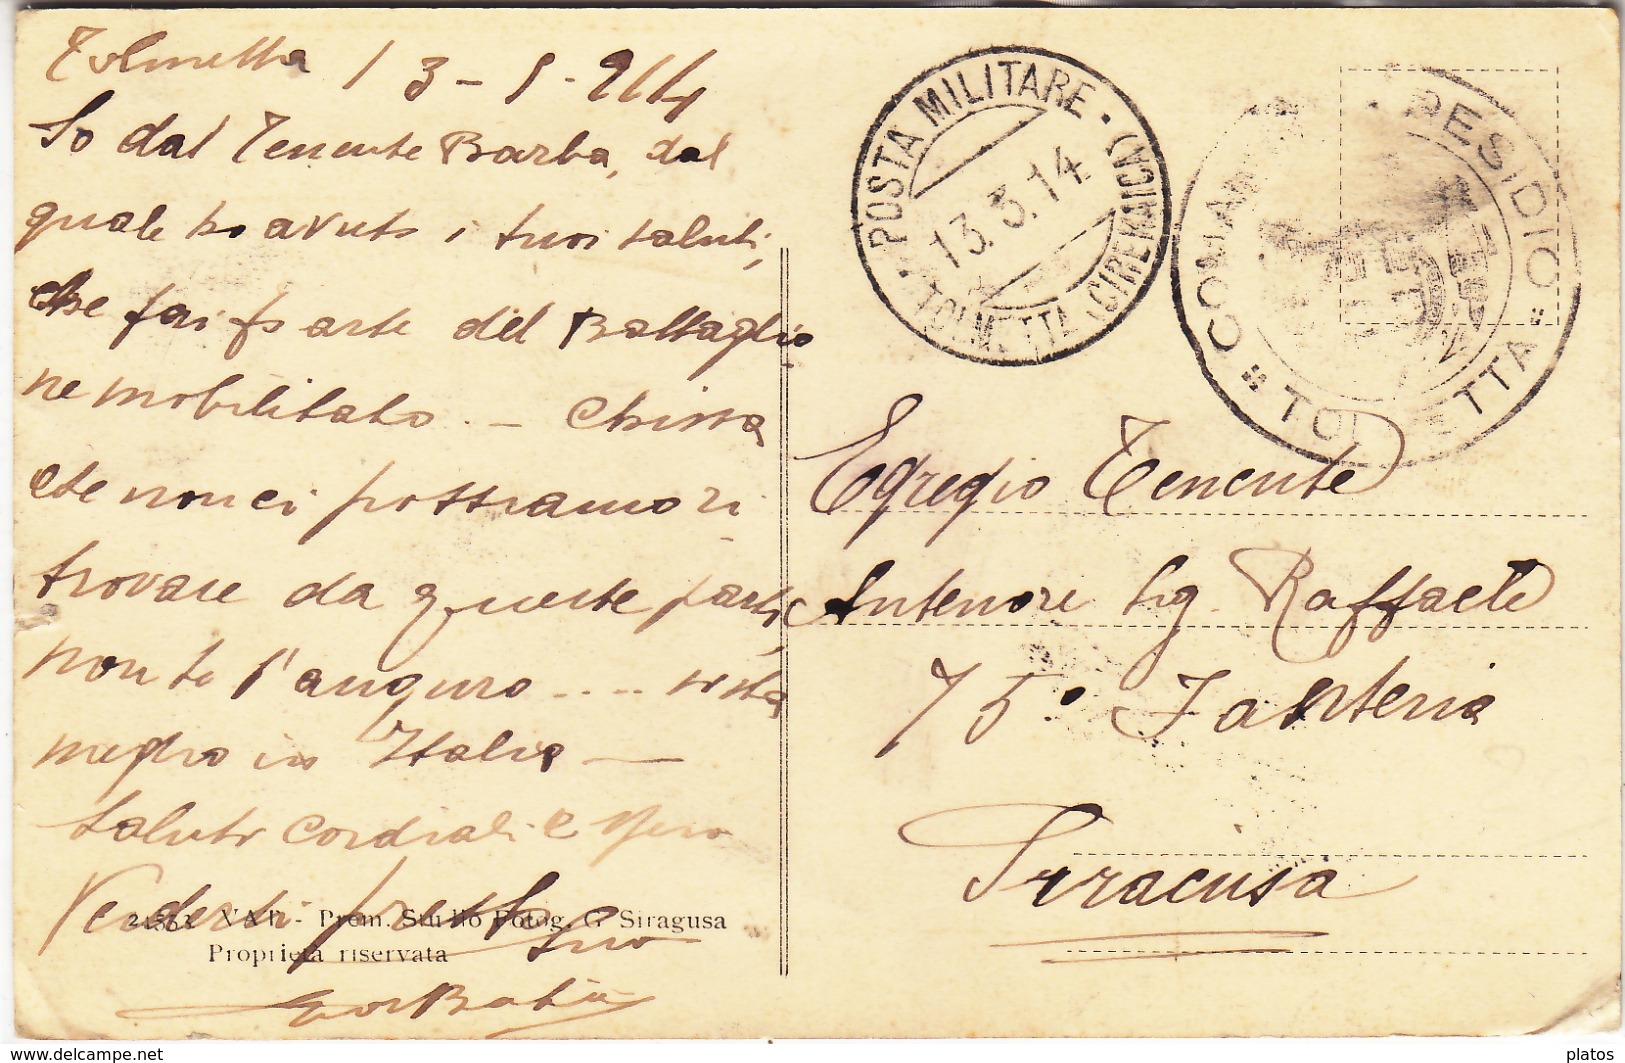 Tolmetta 13-5-914
So dal Tenente Barba, dal
quale ho avuto i tuoi saluti,
che fai parte del Battaglio
ne mobilitato. - Chissà
che non ci possiamo ri
trovare da queste parti,
non te l'auguro....
meglio in Italia —
Saluti cordiali e spero
Vederti presto
Tuo
21553 VAT - Prem. Studio Fotog. G Siragusa
Proprietà riservata
POSTA MILITARE
13.5.14
TOLMETTA (CIRENAICA)
COMAN PRESIDIO
TOLMETTA
Egregio Tenente
Antenore Sig. Raffaele
75° Fanteria
Siracusa
platos
www.delcampe.net